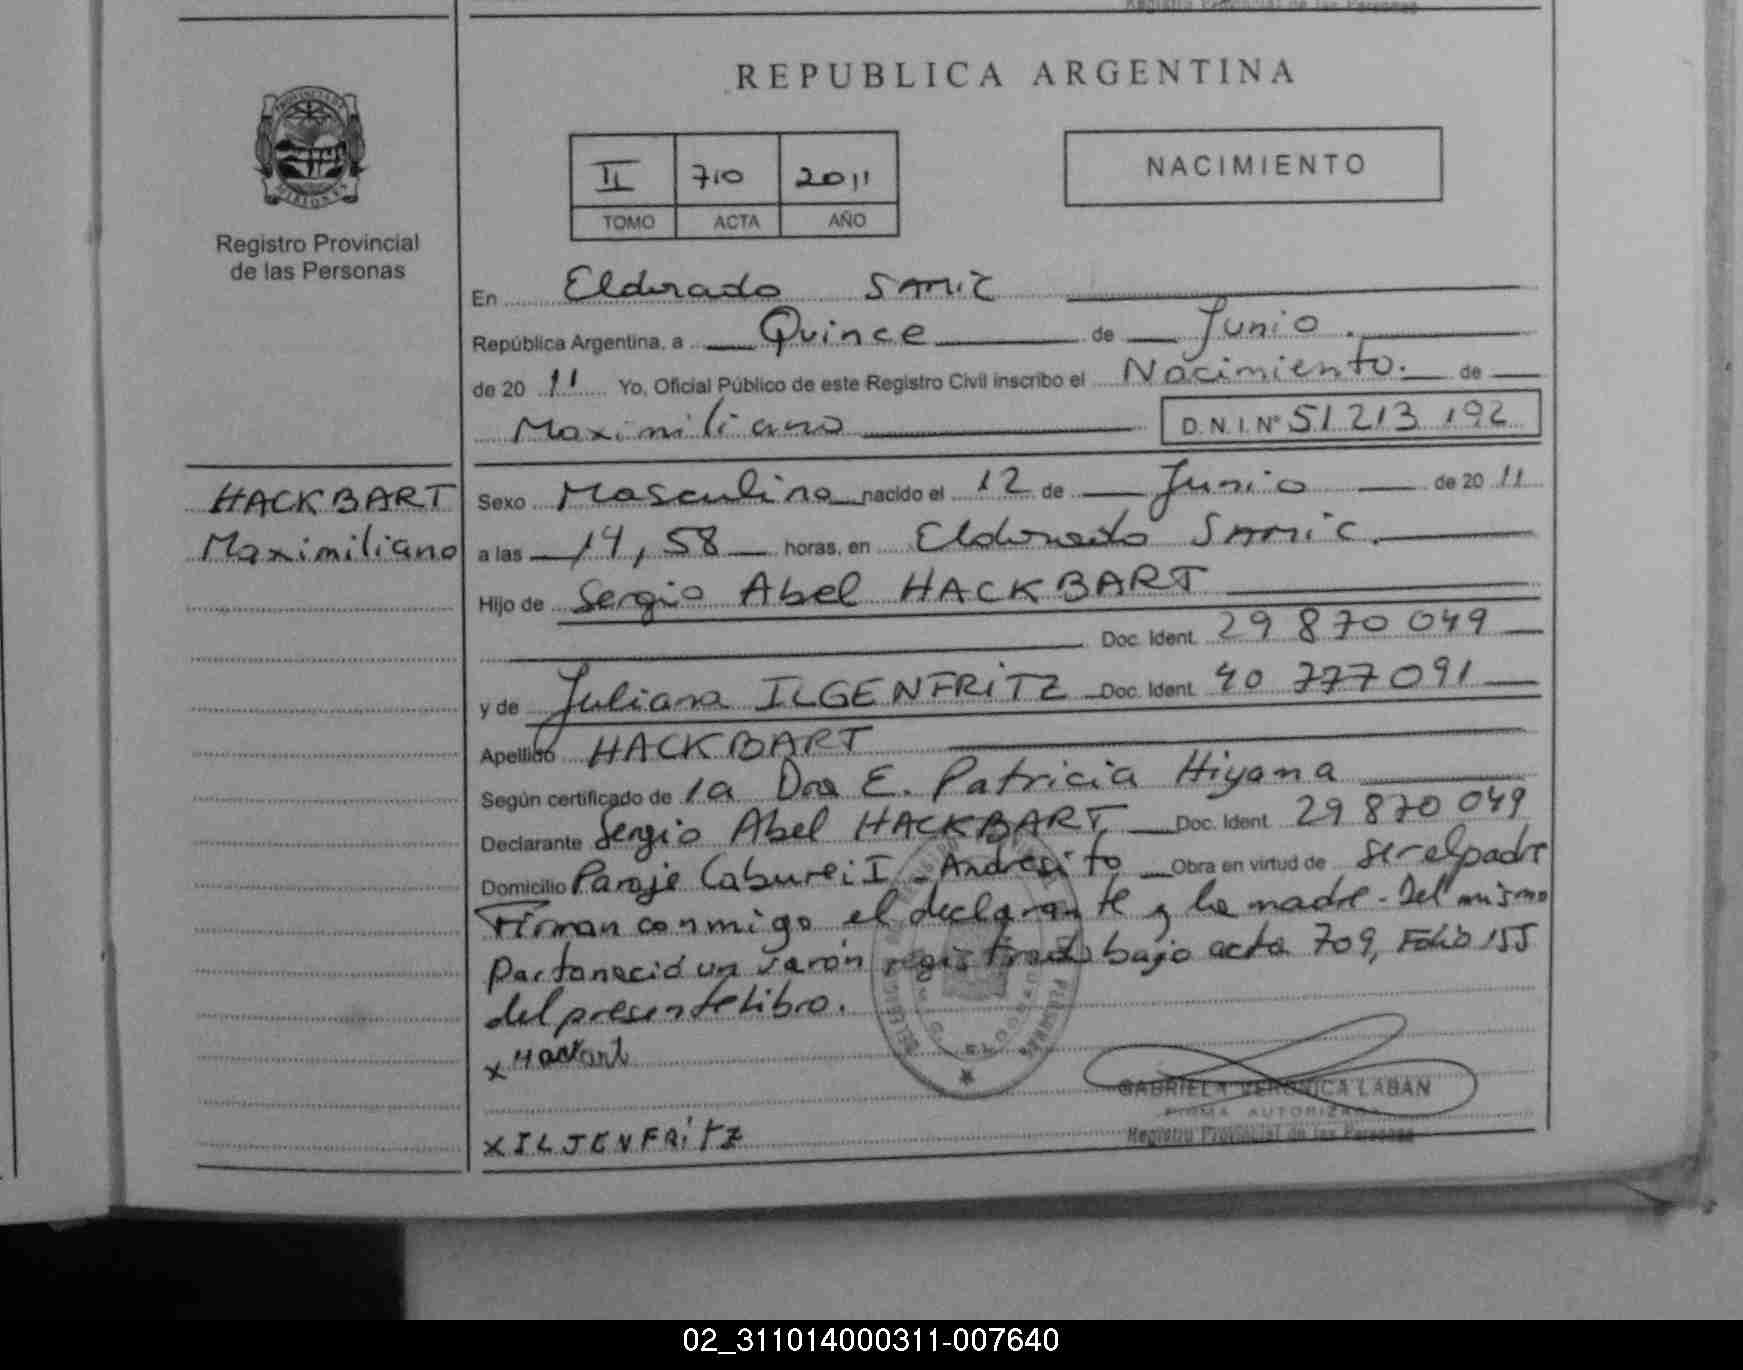 REPUBLICA ARGENTINA
PROVINCIA DE
MISIONES
Registro Provincial
de las Personas
II 710 2011
TOMO ACTA AÑO
NACIMIENTO
En Eldorado SAMIC
República Argentina, a Quince de Junio.
de 20 11 Yo, Oficial Público de este Registro Civil inscribo el Nacimiento. de
Maximiliano D.N.I.Nº 51 213 192
HACKBART
Maximiliano
Sexo Masculino nacido el 12 de Junio de 20 11
a las 14,58 horas, en Eldorado SAMIC.
Hijo de Sergio Abel HACKBART
Doc. Ident. 29 870 049
y de Juliana ILGENFRITZ Doc. Ident. 40 777 091
Apellido HACKBART
Según certificado de la Dra E. Patricia Hiyana
Declarante Sergio Abel HACKBART, Doc. Ident. 29 870 049
Domicilio Paraje Caburei I - Andresito Obra en virtud de ser el padre
Firman conmigo el declarante y la madre - Del mismo
Parto nació un varón registrado bajo acta 709, Folio 155
del presente libro.
x Hackart
x ILJENFRITZ
GABRIELA VERONICA LABAN
FIRMA AUTORIZADA
Registro Provincial de las Personas
02_311014000311-007640